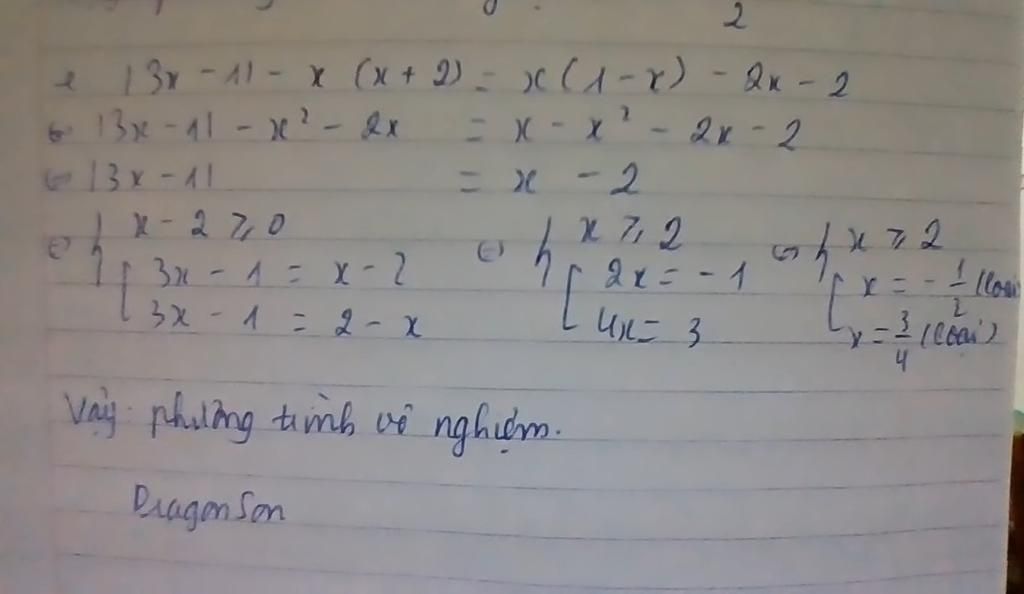 2
e |3x - 1| - x (x + 2) = x(1 - x) - 2x - 2
⇔ |3x - 1| - x² - 2x = x - x² - 2x - 2
⇔ |3x - 1| = x - 2
⇔ { x - 2 ⩾ 0 [ 3x - 1 = x - 2 3x - 1 = 2 - x ⇔ { x ⩾ 2 [ 2x = -1 4x = 3 ⇔ { x ⩾ 2 [ x = -1/2 (loại x = 3/4 (loại)
Vậy: phương trình vô nghiệm.
DragonSon